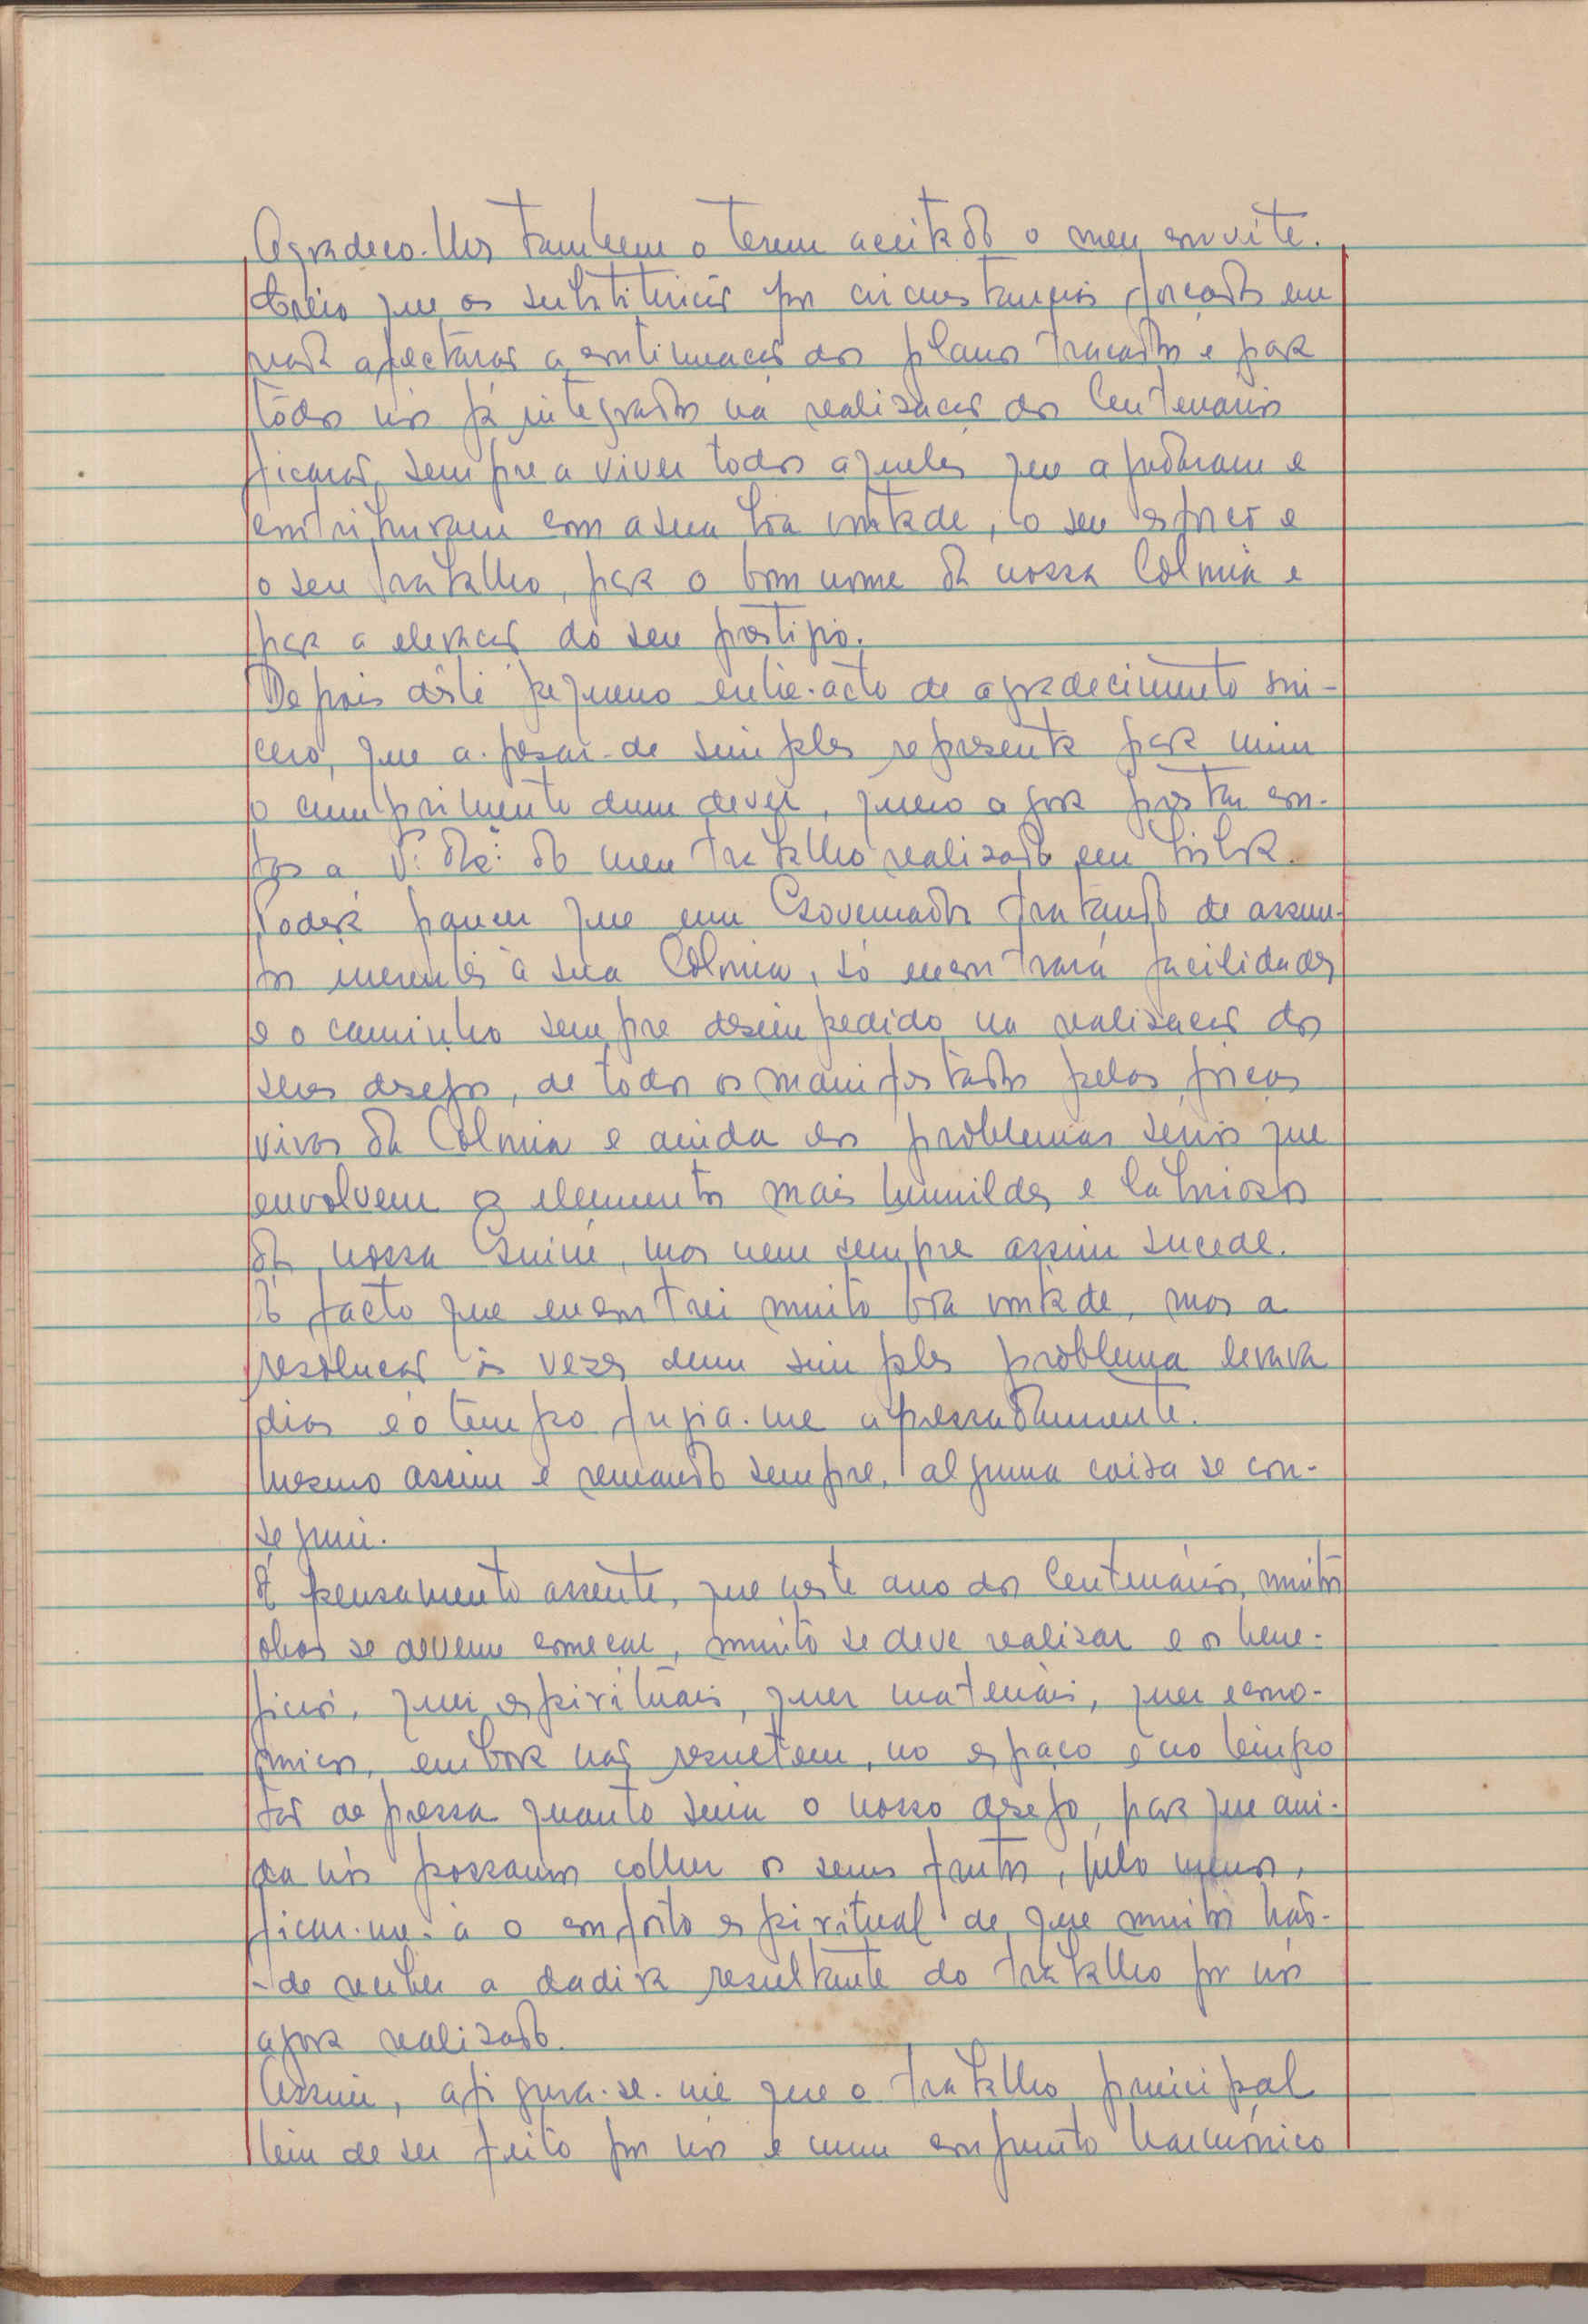 Agradeço-lhes tambem o terem aceitado o meu convite.
Creio que as substituições por circunstancias forçadas em
nada afectarão a continuação dos planos traçados e para
todos nós já integrados na realização dos Centenarios
ficarão sempre a viver todos aqueles que ajudaram e
contribuiram com a sua boa vontade, o seu esforço e
o seu trabalho, para o bom nome da nossa Colónia e
para a elevação do seu prestigio.
Depois dêste pequeno entre-acto de agradecimento sin-
cero, que a-pesar-de simples representa para mim
o cumprimento dum dever, quero agora prestar con-
tas a V. Exas. do meu trabalho realizado em Lisboa.
Poderá parecer que um Governador tratando de assun-
tos inerentes à sua Colónia, só encontrará facilidades
e o caminho sempre desimpedido na realização dos
seus desejos, de todos os manifestados pelas fôrças
vivas da Colónia e ainda dos problemas sérios que
envolvem os elementos mais humildes e laboriosos
da nossa Guiné, mas nem sempre assim sucede.
É facto que encontrei muito boa vontade, mas a
resolução às vezes dum simples problema levava
dias e o tempo fugia-me apressadamente.
Mesmo assim e remando sempre, alguma coisa se con-
seguiu.
É pensamento assente, que neste ano dos Centenários, muitas
obras se devem começar, muito se deve realizar e os bene-
ficios, quer espirituais, quer materiais, quer econó-
micos, embora não resultem, no espaço e no tempo
tão depressa quanto seria o nosso desejo, para que ain-
da nós possamos colher os seus frutos, pelo menos,
ficar-nos-á o conforto espiritual de que muitos hão-
-de receber a dadiva resultante do trabalho por nós
agora realizado.
Assim, afigura-se-me que o trabalho principal
tem de ser feito por nós e num conjunto harmónico